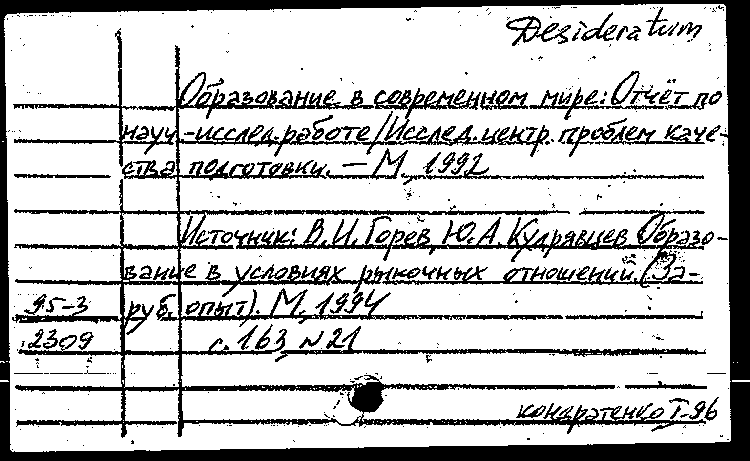 Desideratum
Образование в современном мире: Отчёт по
науч.-исслед. работе/Исслед. центр проблем каче-
ства подготовки. — М., 1992
Источник: В.И. Горев, Ю.А. Кудрявцев Образо-
вание в условиях рыночных отношений. (За-
95-3 руб. опыт). М., 1994
2309 с. 163 № 21
кондратенко I-96